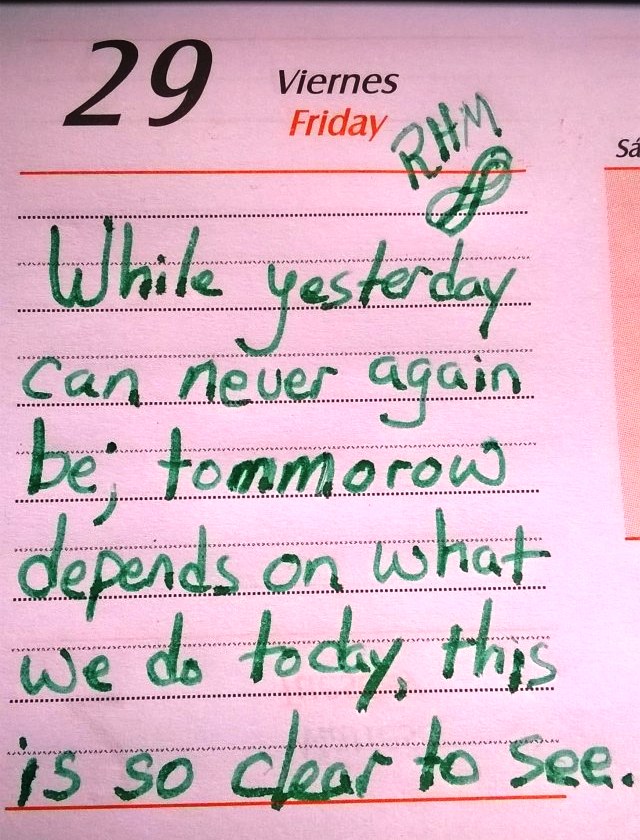 29
Viernes
Friday
Sá
RHM
While yesterday
can never again
be; tommorow
depends on what
we do today, this
is so clear to see.